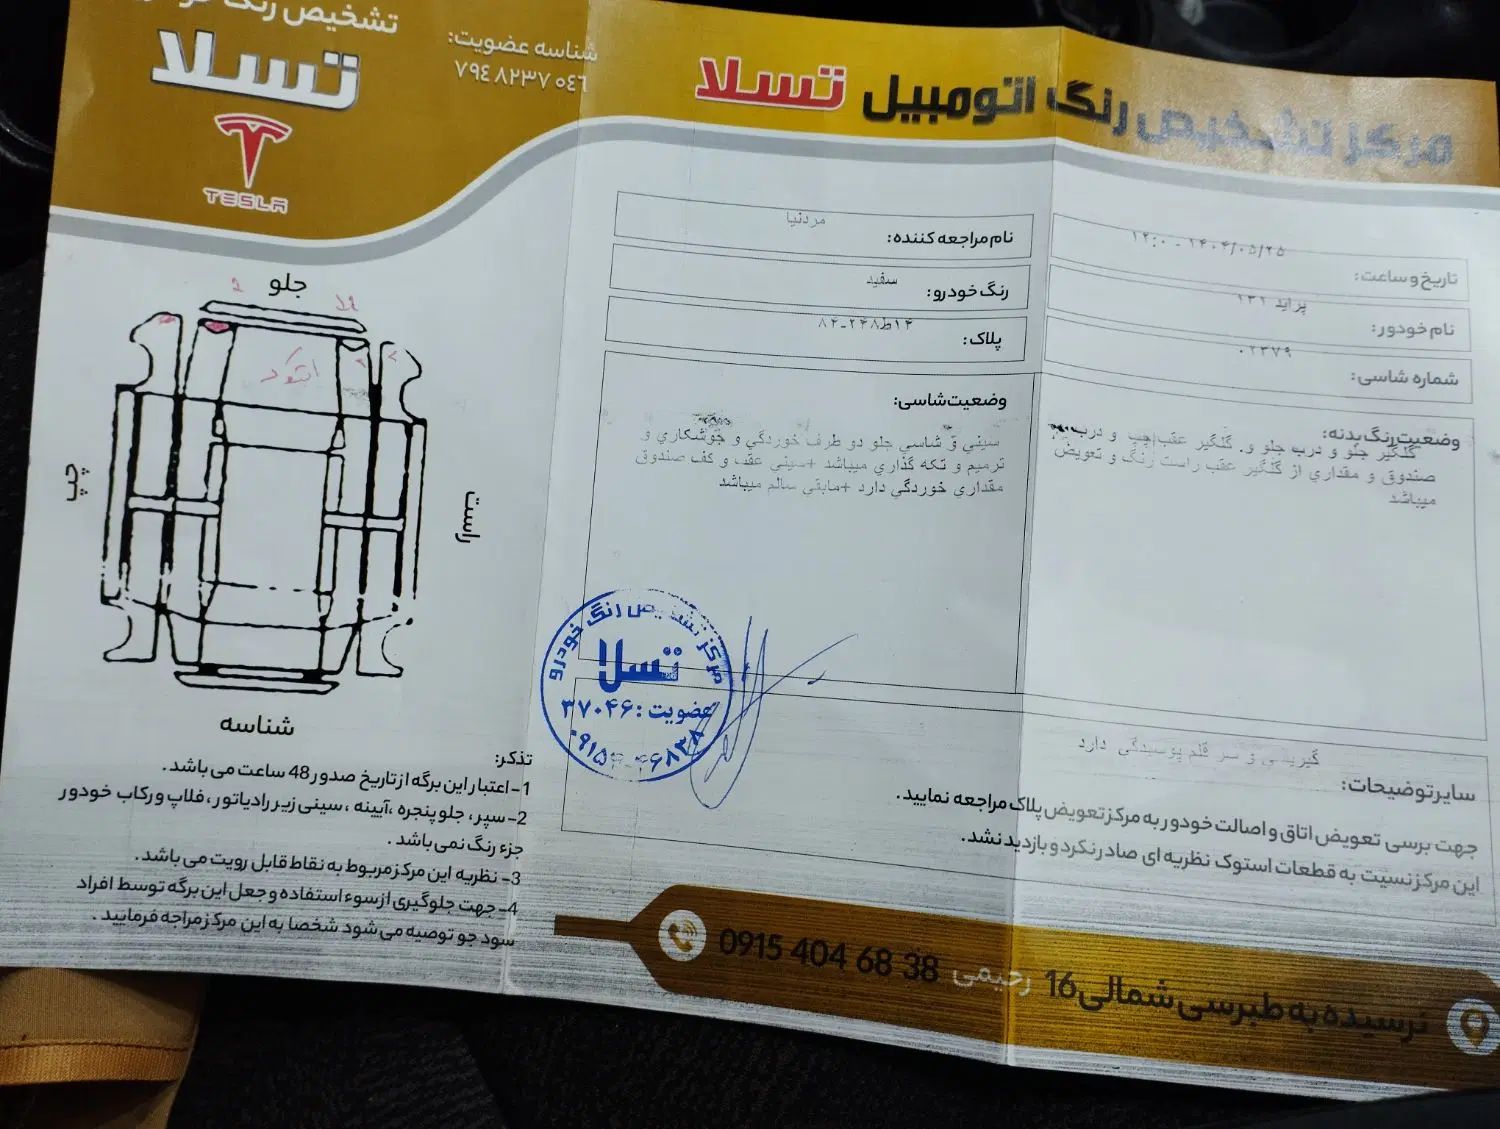 مرکز تشخیص رنگ اتومبیل تسلا
تسلا
TESLA
شناسه عضویت:
۷۹۴۸۲۳۷۰۴۶
تاریخ و ساعت:
۱۴۰۴/۰۵/۲۵ - ۱۲:۰
نام خودور:
پراید ۱۳۱
شماره شاسی:
۰۲۳۷۹
نام مراجعه کننده:
مردنیا
رنگ خودرو:
سفید
پلاک:
۱۴ط۲۴۸-۸۴
وضعیت رنگ بدنه:
گلگیر جلو و درب جلو و. گلگیر عقب چپ و درب
صندوق و مقداري از گلگیر عقب راست رنگ و تعویض
میباشد
وضعیت شاسی:
سیني و شاسي جلو دو طرف خوردگي و جوشکاري و
ترمیم و تکه گذاري میباشد +سیني عقب و کف صندوق
مقداري خوردگي دارد +مابقي سالم میباشد
سایر توضیحات:
و سر قلم پوسیدگی دارد
جهت برسی تعویض اتاق و اصالت خودور به مرکز تعویض پلاک مراجعه نمایید.
این مرکز نسبت به قطعات استوک نظریه ای صادر نکرد و بازدید نشد.
مرکز تشخیص رنگ خودرو
تسلا
عضویت: ۳۷۰۴۶
جلو
چپ
راست
شناسه
تذکر:
1- اعتبار این برگه از تاریخ صدور 48 ساعت می باشد.
2- سپر، جلو پنجره، آیینه، سینی زیر رادیاتور، فلاپ و رکاب خودور
جزء رنگ نمی باشد.
3- نظریه این مرکز مربوط به نقاط قابل رویت می باشد.
4- جهت جلوگیری از سوء استفاده و جعل این برگه توسط افراد
سود جو توصیه می شود شخصا به این مرکز مراجه فرمایید.
نرسیده به طبرسی شمالی 16 رحیمی 0915 404 68 38